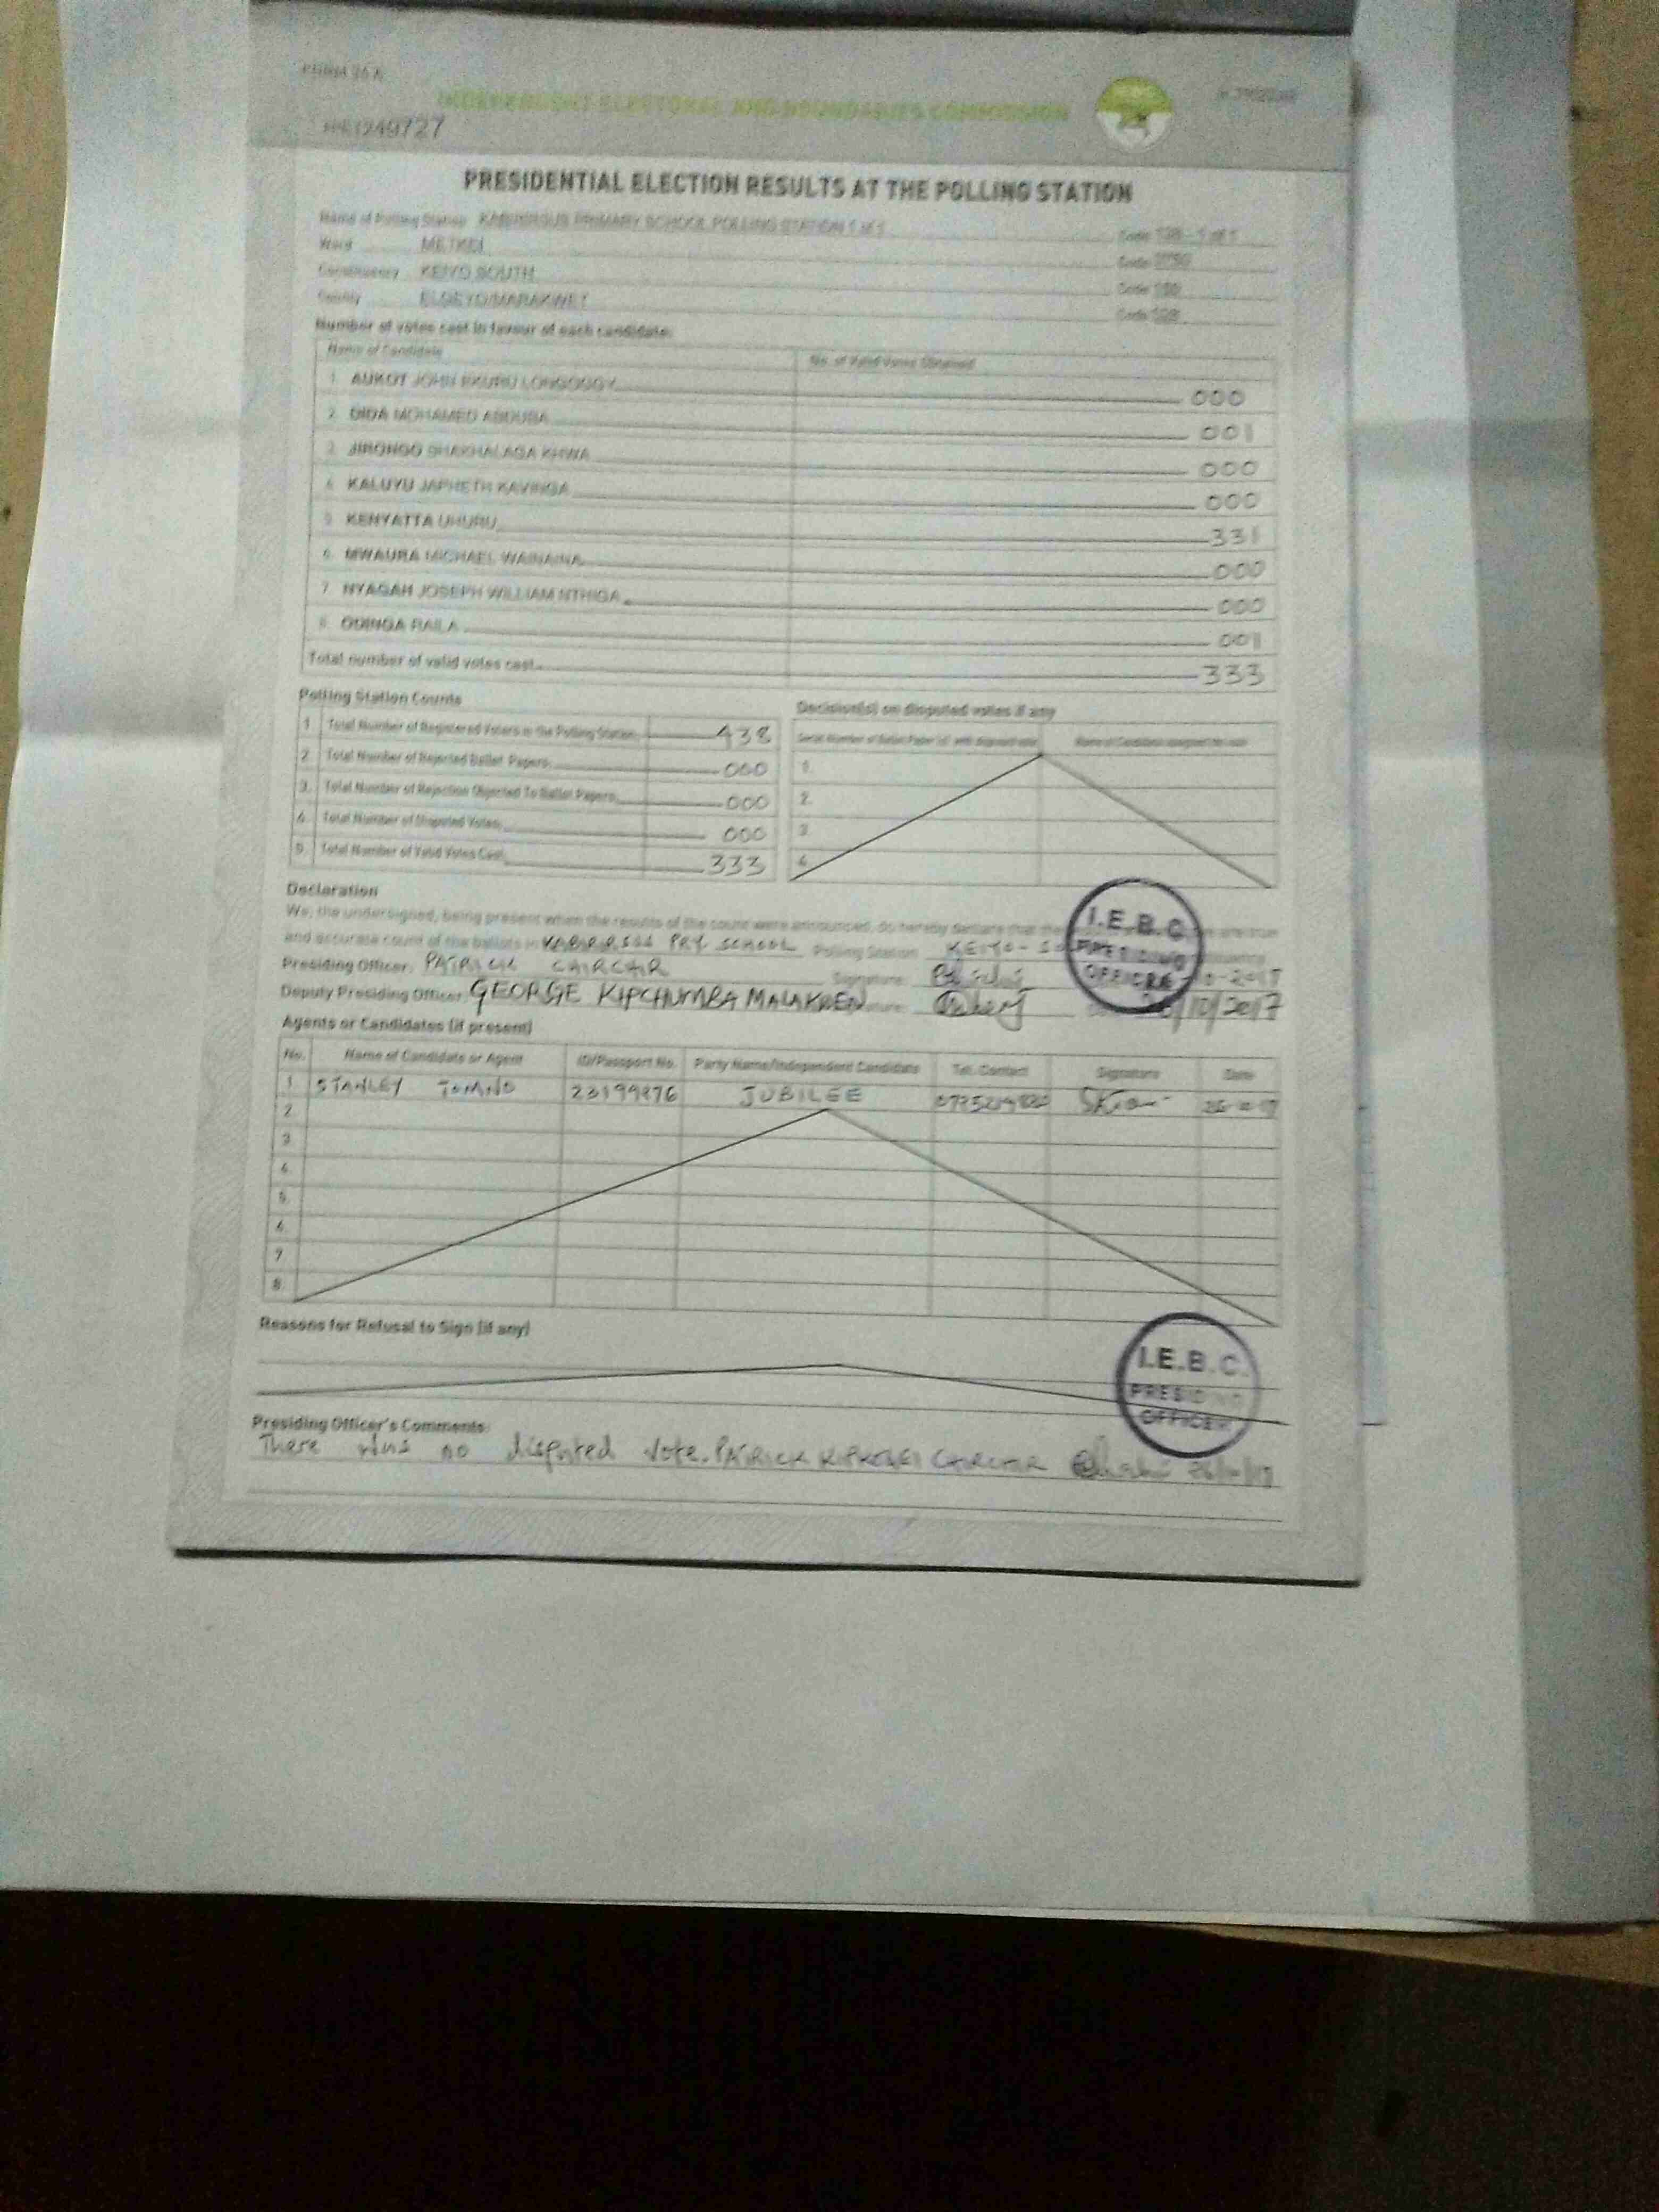 FORM 34 A
INDEPENDENT ELECTORAL AND BOUNDARIES COMMISSION
PRESIDENTIAL ELECTION RESULTS AT THE POLLING STATION
Name of Polling Station PRIMARY SCHOOL POLLING STATION 1 of 1
Ward METKEI
Constituency KEIYO SOUTH
County ELGEYO/MARAKWET
Number of votes cast in favour of each candidate:
Name of Candidate No. of Valid Votes Obtained
1. AUKOT JOHN EKURU LONGOGGY 000
2. DIDA MOHAMED ABDUBA 001
3. JIRONGO SHAKHALAGA KHWA 000
4. KALUYU JAPHETH KAVINGA 000
5. KENYATTA UHURU 331
6. MWAURA MICHAEL WAINAINA 000
7. NYAGAH JOSEPH WILLIAM NTHIGA 000
8. ODINGA RAILA 001
Total number of valid votes cast 333
Polling Station Counts
1. Total Number of Registered Voters in the Polling Station 438
2. Total Number of Rejected Ballot Papers 000
3. Total Number of Rejection Objected To Ballot Papers 000
4. Total Number of Disputed Votes 000
5. Total Number of Valid Votes Cast 333
Decision(s) on disputed votes if any
Serial Number of Ballot Paper (s) with disputed vote Name of Candidate assigned the vote
1.
2.
3.
4.
Declaration
We, the undersigned, being present when the results of the count were announced, do hereby declare that the are true
and accurate count of the ballots in PRY SCHOOL Polling Station KEIYO-
Presiding Officer: PATRICK CHIRCHIR Signature
Deputy Presiding Officer: GEORGE KIPCHUMBA Signature /10/2017
I.E.B.C
PRESIDING
OFFICER
Agents or Candidates (if present)
No. Name of Candidate or Agent ID/Passport No. Party Name/Independent Candidate Tel. Contact Signature Date
1 STANLEY JUBILEE
2
3
4
5
6
7
8
Reasons for Refusal to Sign (if any)
I.E.B.C.
PRESIDING
OFFICER
Presiding Officer's Comments:
There was no disputed vote. PATRICK